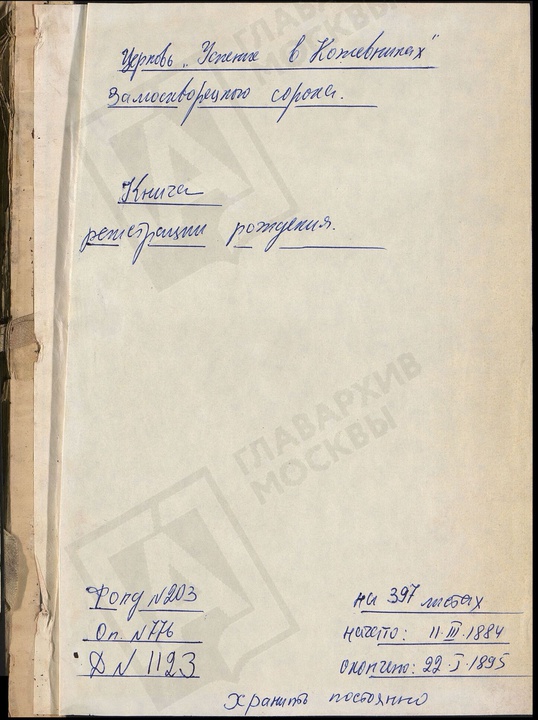 Церковь „Успение в Кожевниках"
Замоскворецкого сорока.
Книга
регистрации рождения.
Фонд №203
Оп. №776
Д № 1123
на 397 листах
начато: 11·III·1884
окончено: 22·I·1895
Хранить постоянно
ГЛАВАРХИВ
МОСКВЫ
ГЛАВАРХИВ
МОСКВЫ